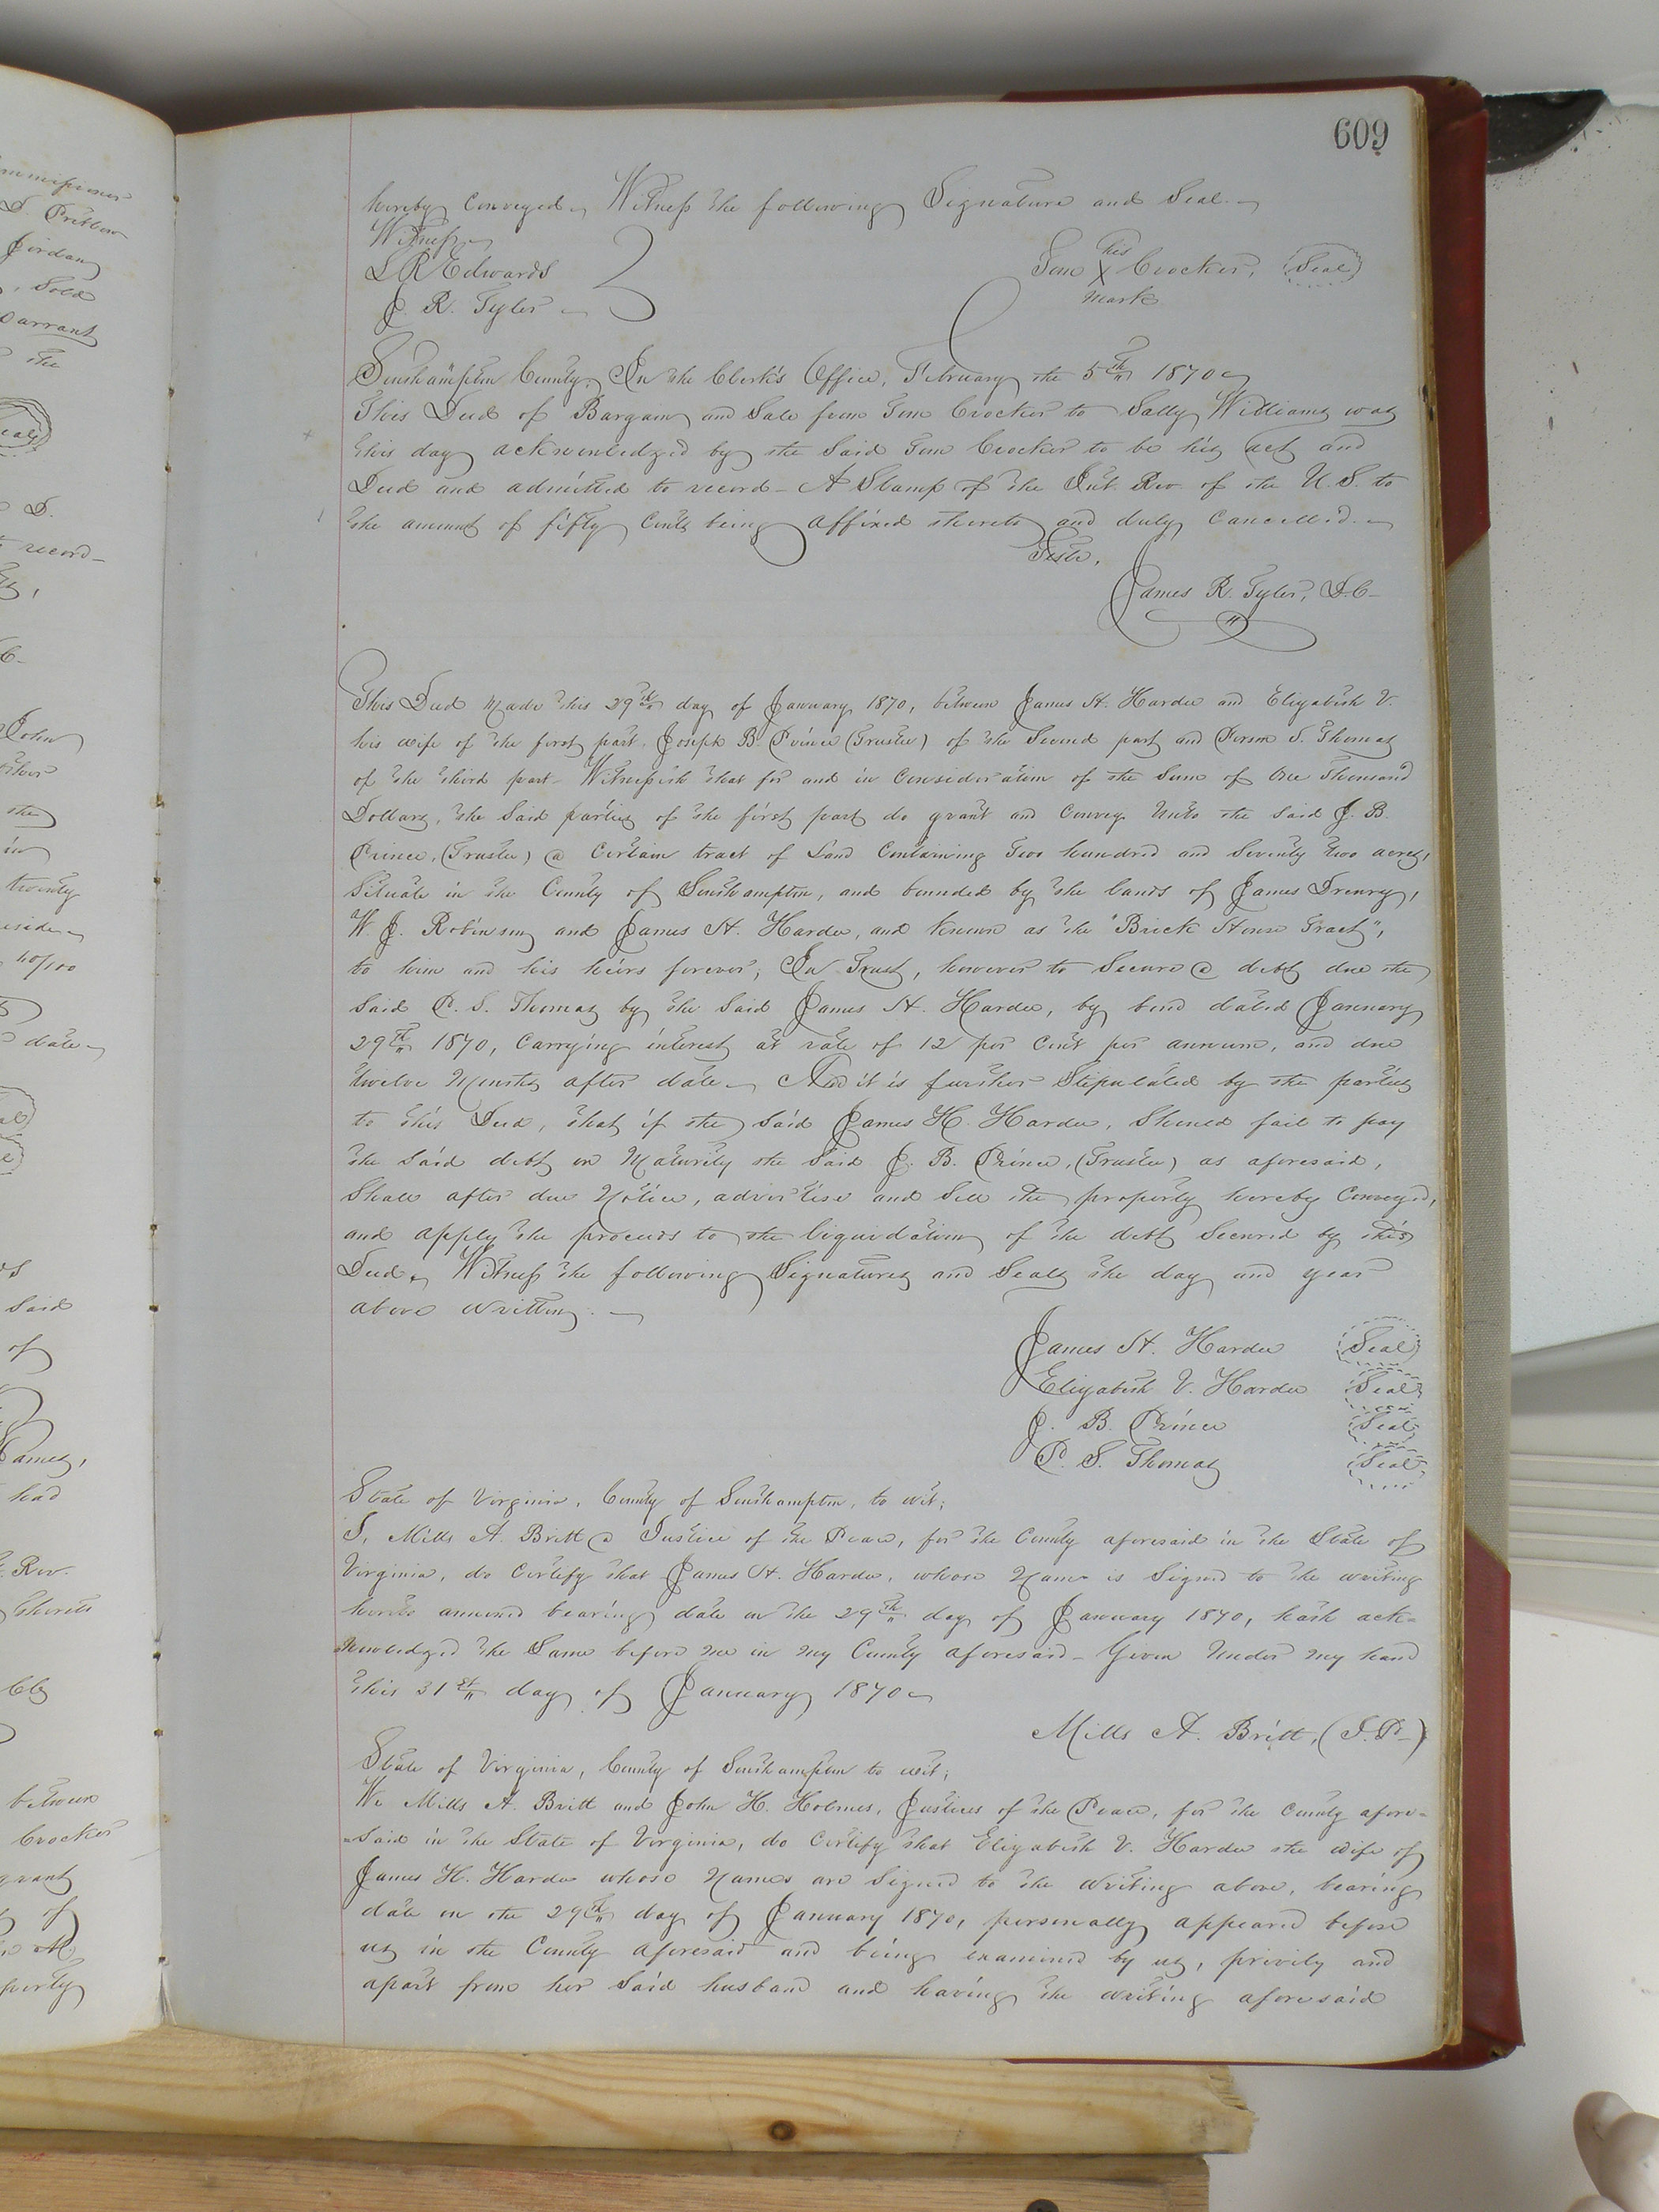 609
hereby Conveyed. Witness the following Signature and Seal.
Witness
L R Edwards
J. R. Tyler
his
Tom X Crocker, (Seal)
mark
Southampton County, In the Clerk's Office, February the 5th 1870
This Deed of Bargain and Sale from Tom Crocker to Sally Williams was
this day acknowledged by the Said Tom Crocker to be his act and
Deed and admitted to record - A Stamp of the Int. Rev. of the U. S. to
the amount of fifty Cents being affixed thereto and duly Cancelled.
Teste,
James R. Tyler, D.C.
This Deed Made this 29th day of January 1870, between James H. Hardee and Elizabeth V.
his wife of the first part, Joseph B. Prince (Trustee) of the Second part and S. Thomas
of the third part - Witnesseth that for and in Consideration of the Sum of One Thousand
Dollars, the Said parties of the first part do grant and Convey Unto the Said J. B.
Prince, (Trustee) a Certain tract of Land Containing Two hundred and Seventy two acres,
Situate in the County of Southampton, and bounded by the lands of James Drewry,
W J. Robinson and James H. Hardee, and known as the "Brick House Tract",
to him and his heirs forever; In Trust, however to Secure a debt due the
Said P. S. Thomas by the Said James H. Hardee, by bond dated January
29th 1870, Carrying interest at rate of 12 per Cent per annum, and due
twelve Months after date. And it is further Stipulated by the parties
to this Deed, that if the Said James H. Hardee, Should fail to pay
the Said debt on Maturity the Said J. B. Prince, (Trustee) as aforesaid,
Shall after due Notice, advertise and Sell the property hereby Conveyed,
and apply the proceeds to the liquidation of the debt Secured by this
Deed. Witness the following Signatures and Seals the day and year
above written.
James H. Hardee (Seal)
Elizabeth V. Hardee (Seal)
J. B. Prince (Seal)
P. S. Thomas (Seal)
State of Virginia, County of Southampton, to wit;
I, Mills A. Britt a Justice of the Peace, for the County aforesaid in the State of
Virginia, do Certify that James H. Hardee, whose Name is Signed to the writing
hereto annexed bearing date on the 29th day of January 1870, hath ack-
nowledged the Same before me in my County aforesaid - Given Under my hand
this 31st day of January 1870
Mills A. Britt, (J. P.)
State of Virginia, County of Southampton to wit;
We Mills A. Britt and John H. Holmes, Justices of the Peace, for the County afore-
-said in the State of Virginia, do Certify that Elizabeth V. Hardee the wife of
James H. Hardee whose Names are Signed to the writing above, bearing
date on the 29th day of January 1870, personally appeared before
us in the County aforesaid and being examined by us, privily and
apart from her Said husband and having the writing aforesaid